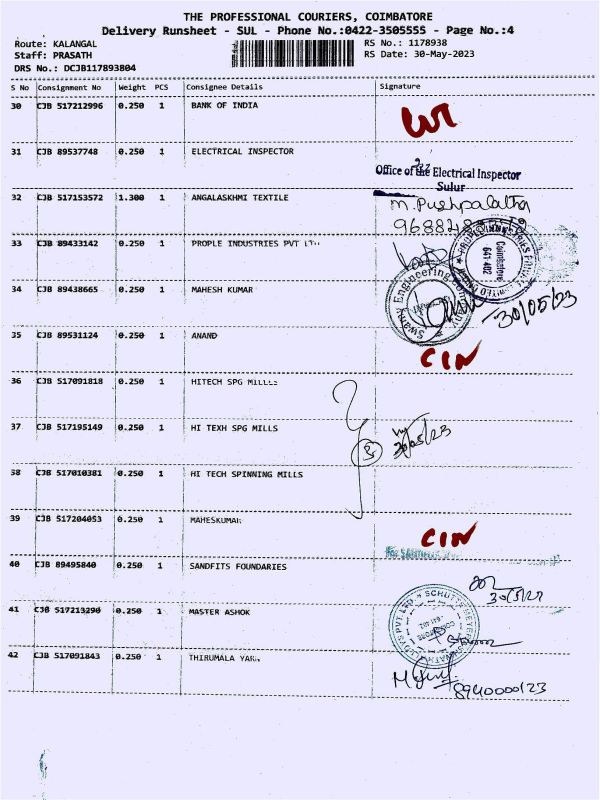 THE PROFESSIONAL COURIERS, COIMBATORE
Delivery Runsheet - SUL - Phone No.:0422-3505555 - Page No.:4
Route: KALANGAL RS No.: 1178938
Staff: PRASATH RS Date: 30-May-2023
DRS No.: DCJB117893804
S No Consignment No Weight PCS Consignee Details Signature
30 CJB 517212996 0.250 1 BANK OF INDIA
31 CJB 89537748 0.250 1 ELECTRICAL INSPECTOR
Office of the Electrical Inspector
Sulur
32 CJB 517153572 1.300 1 ANGALASKHMI TEXTILE M. Pushpalatha
33 CJB 89433142 0.250 1 PROPLE INDUSTRIES PVT
Coimbatore
641 402
34 CJB 89438665 0.250 1 MAHESH KUMAR
Swamy Engineering Company
30/05/23
35 CJB 89531124 0.250 1 ANAND CIN
36 CJB 517091818 0.250 1 HITECH SPG MILLS
37 CJB 517195149 0.250 1 HI TEXH SPG MILLS 30/05/23
38 CJB 517010381 0.250 1 HI TECH SPINNING MILLS
39 CJB 517204053 0.250 1 MAHESKUMAR CIN
40 CJB 89495840 0.250 1 SANDFITS FOUNDARIES
41 CJB 517213290 0.250 1 MASTER ASHOK
42 CJB 517091843 0.250 1 THIRUMALA